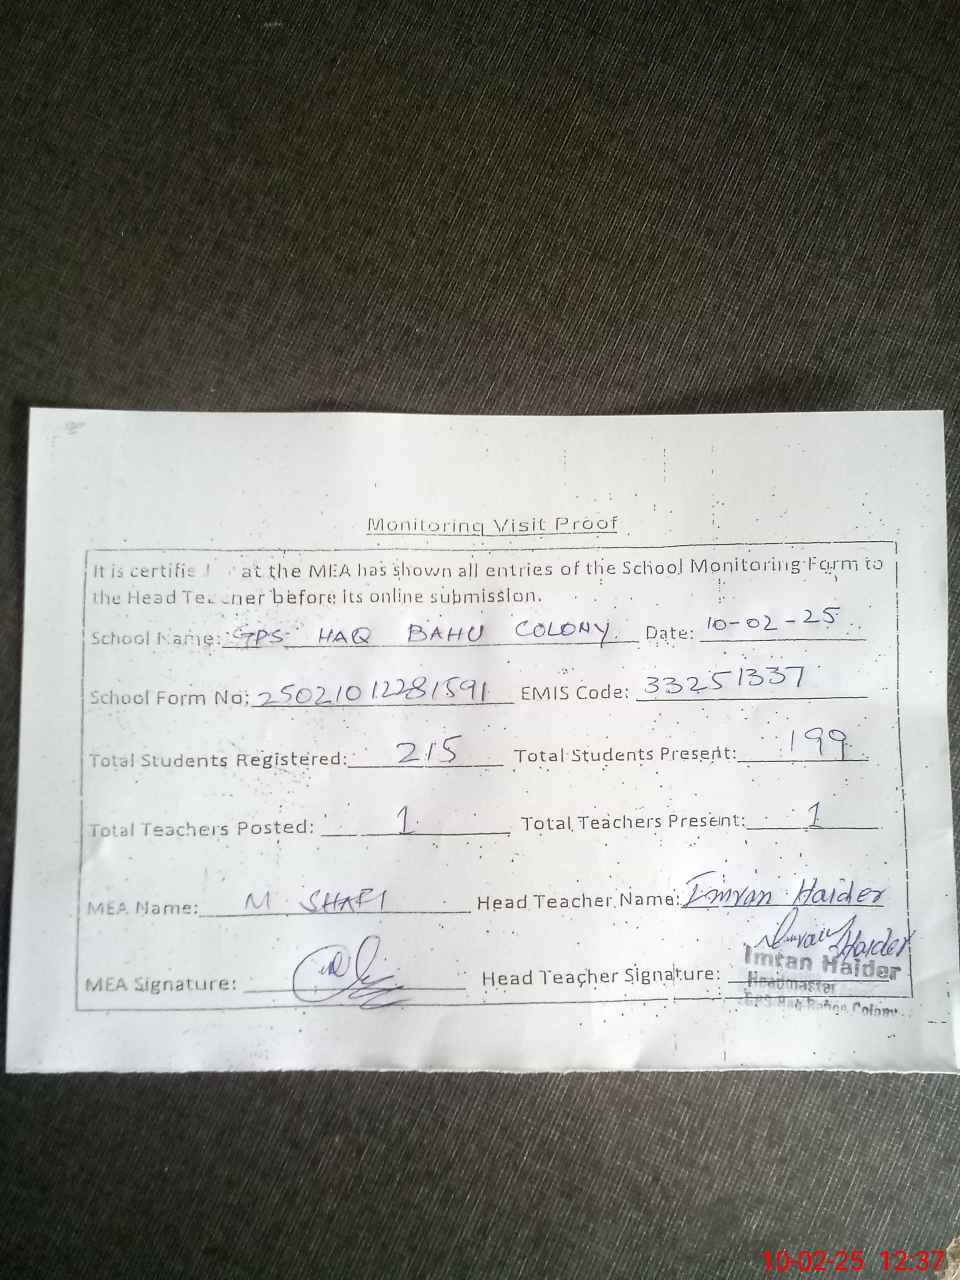 Monitoring Visit Proof
It is certifie at the MEA has shown all entries of the School Monitoring Form to
the Head Te ner before its online submission.
School Name: GPS HAQ BAHU COLONY Date: 10-02-25
School Form No: 25021012281591 EMIS Code: 33251337
Total Students Registered: 215 Total Students Present: 199
Total Teachers Posted: 1 Total Teachers Present: 1
MEA Name: M. SHAFI Head Teacher Name: Imran Haider
Imran Haider
MEA Signature: Head Teacher Signature:
Imran Haider
Headmaster
GPS Haq Bahoo Colony
10-02-25 12:37